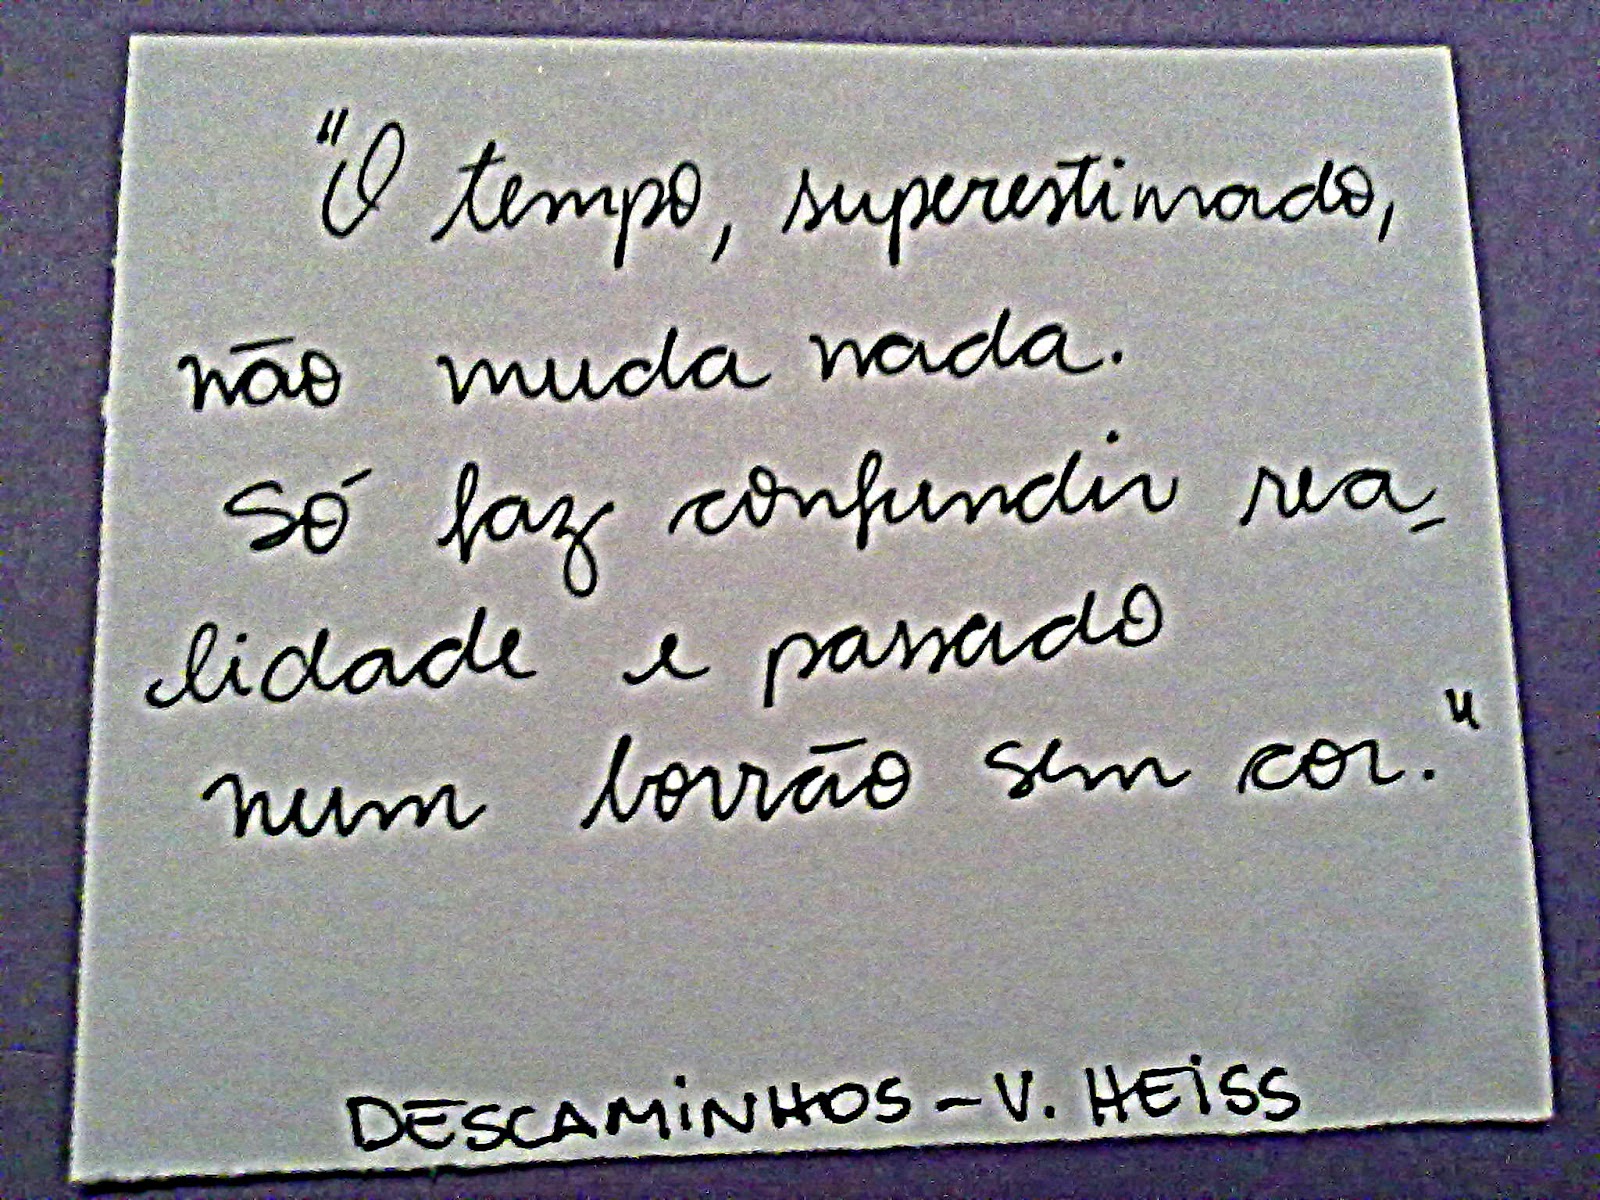 "O tempo, superestimado,
não muda nada.
Só faz confundir rea-
lidade e passado
num borrão sem cor."
DESCAMINHOS - V. HEISS